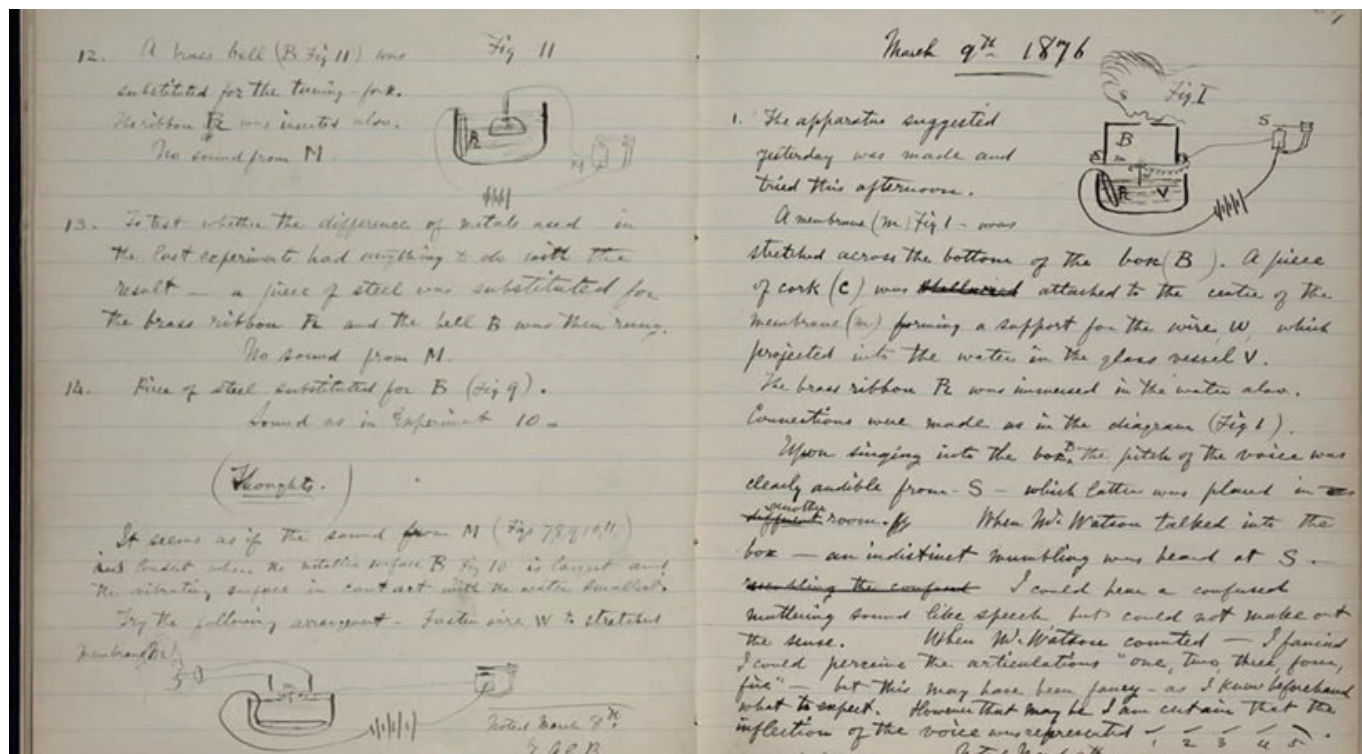 12. A brass bell (B Fig 11) was
Fig 11
substituted for the tuning-fork.
The ribbon R was inserted also.
No sound from M.
R
M
13. To test whether the difference of metals used in
the last experiments had anything to do with the
result — a piece of steel was substituted for
the brass ribbon R and the bell B was then rung.
No sound from M.
14. Piece of steel substituted for B (Fig 9).
Sound as in Experiment 10 —
(Thoughts.)
It seems as if the sound from M (Figs 7,8,9,10,11,)
was loudest when the metallic surface B Fig 10 is largest and
the vibrating surface in contact with the water smallest.
Try the following arrangement - Fasten wire W to stretched
membrane
Noted March 8th
March 9th 1876
Fig 1
1. The apparatus suggested
yesterday was made and
tried this afternoon.
B
m
R
V
S
A membrane (m) Fig 1 - was
stretched across the bottom of the box (B). A piece
of cork (C) was attached to the centre of the
membrane (m) forming a support for the wire W which
projected into the water in the glass vessel V.
The brass ribbon R was immersed in the water also.
Connections were made as in the diagram (Fig 1).
Upon singing into the box B, the pitch of the voice was
clearly audible from - S - which latter was placed in
different another room.
When Mr Watson talked into the
box — an indistinct mumbling was heard at S -
resembling the confused I could hear a confused
muttering sound like speech but could not make out
the sense. When Mr Watson counted — I fancied
I could perceive the articulations "one, two, three, four,
five" — but this may have been fancy - as I knew beforehand
what to expect. However that may be I am certain that the
inflection of the voice was represented
1 2 3 4 5